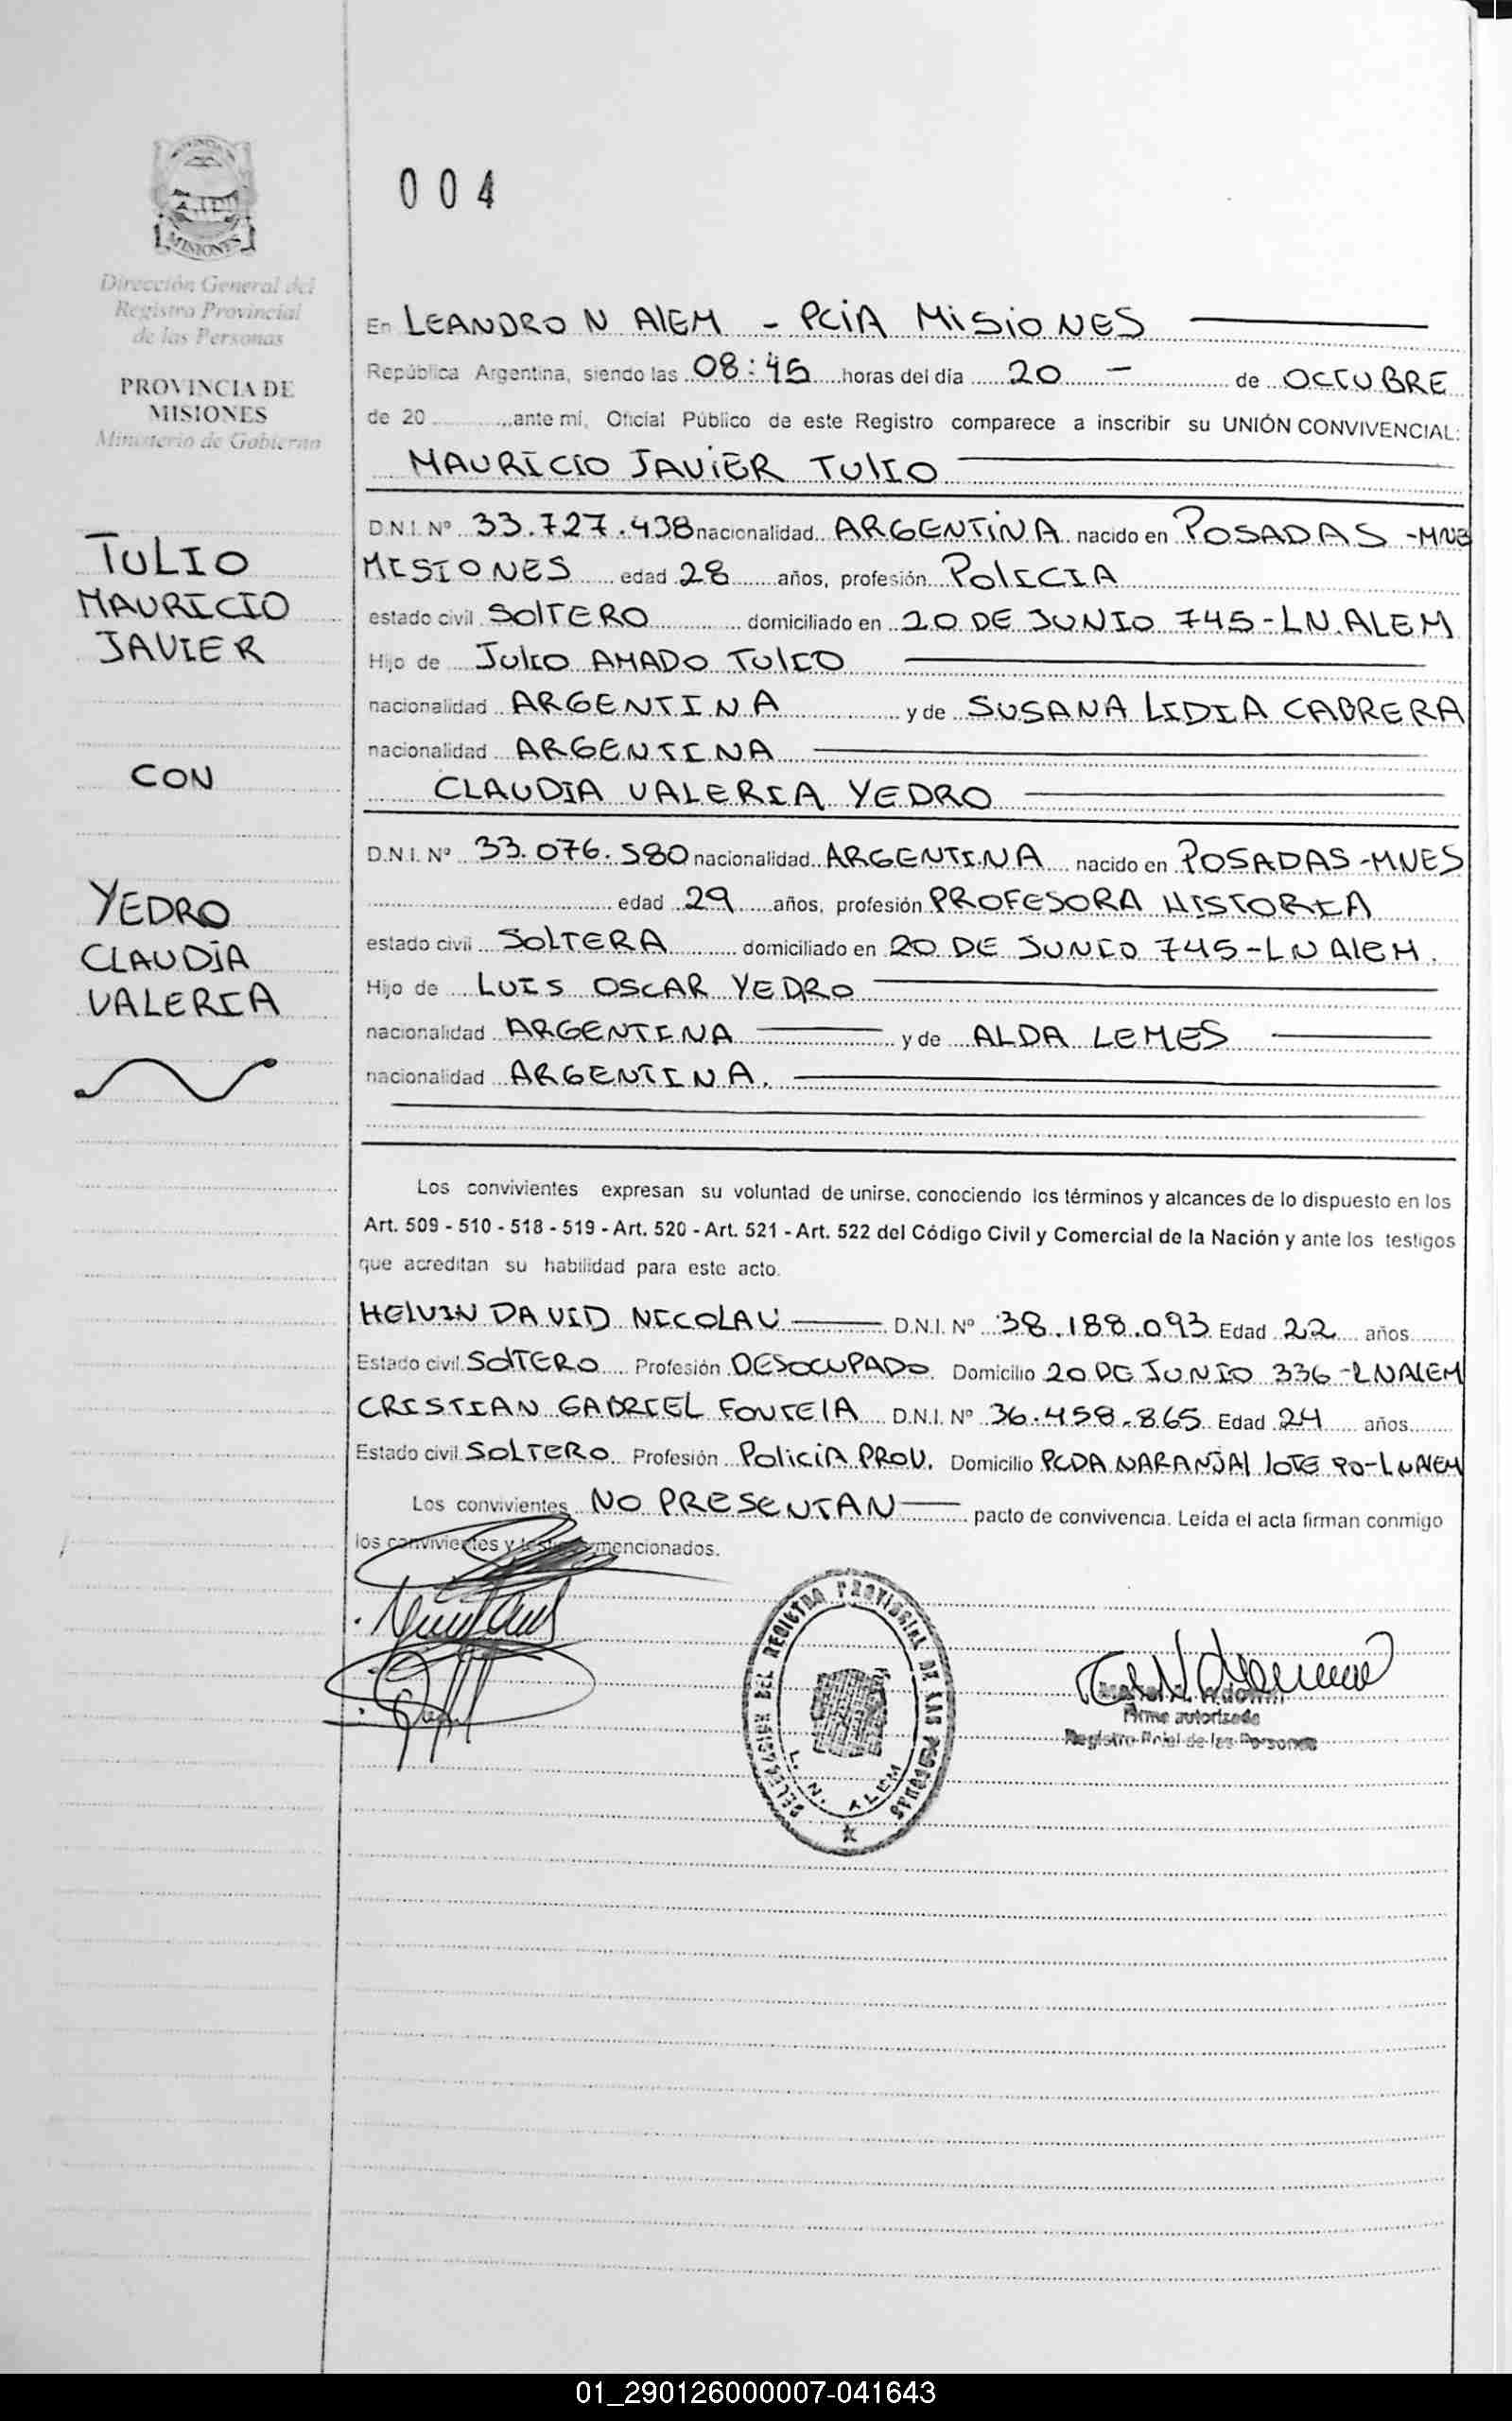 PROVINCIA DE
MISIONES
004
Dirección General del
Registro Provincial
de las Personas
PROVINCIA DE
MISIONES
Ministerio de Gobierno
TULIO
MAURICIO
JAVIER
CON
YEDRO
CLAUDIA
VALERIA
En LEANDRO N ALEM - PCIA MISIONES
República Argentina, siendo las 08:45 horas del día 20 - de OCTUBRE
de 20 ante mí, Oficial Público de este Registro comparece a inscribir su UNIÓN CONVIVENCIAL:
MAURICIO JAVIER TULIO
D.N.I. Nº 33.727.438 nacionalidad ARGENTINA nacido en POSADAS -
MISIONES edad 28 años, profesión POLICIA
estado civil SOLTERO domiciliado en 20 DE JUNIO 745-LN.ALEM
Hijo de JULIO AMADO TULIO
nacionalidad ARGENTINA y de SUSANA LIDIA CABRERA
nacionalidad ARGENTINA
CLAUDIA VALERIA YEDRO
D.N.I. Nº 33.076.580 nacionalidad ARGENTINA nacido en POSADAS-MNES
edad 29 años, profesión PROFESORA HISTORIA
estado civil SOLTERA domiciliado en 20 DE JUNIO 745-LN ALEM.
Hijo de LUIS OSCAR YEDRO
nacionalidad ARGENTINA y de ALDA LEMES
nacionalidad ARGENTINA.
Los convivientes expresan su voluntad de unirse, conociendo los términos y alcances de lo dispuesto en los
Art. 509 - 510 - 518 - 519 - Art. 520 - Art. 521 - Art. 522 del Código Civil y Comercial de la Nación y ante los testigos
que acreditan su habilidad para este acto.
HELVIN DAVID NICOLAU D.N.I. Nº 38.188.093 Edad 22 años
Estado civil SOLTERO Profesión DESOCUPADO. Domicilio 20 DE JUNIO 336-LNALEM
CRISTIAN GABRIEL FONTELA D.N.I. Nº 36.458.865 Edad 24 años
Estado civil SOLTERO Profesión POLICIA PROV. Domicilio PCDA NARANJAL LOTE 90-LNALEM
Los convivientes NO PRESENTAN pacto de convivencia. Leída el acta firman conmigo
los convivientes y mencionados.
DELEGACION DEL REGISTRO PROVINCIAL DE LAS PERSONAS
L. N. ALEM
Firma autorizada
Registro Pcial de las Personas
01_290126000007-041643